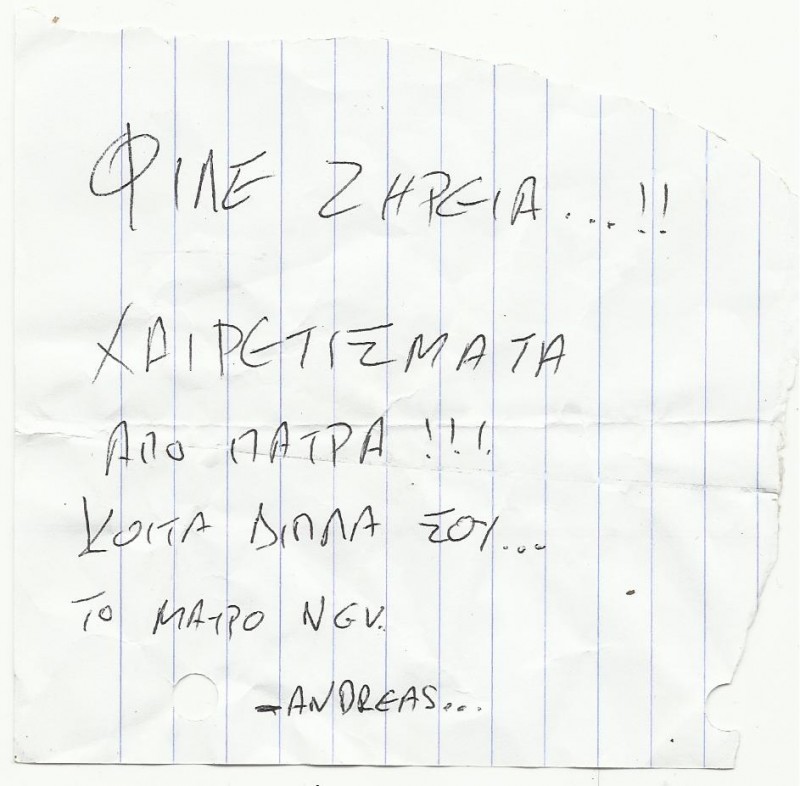 ΦΙΛΕ ΖΗΡΕΙΑ...!!
ΧΑΙΡΕΤΙΣΜΑΤΑ
ΑΠΟ ΠΑΤΡΑ!!!
ΚΟΙΤΑ ΔΙΠΛΑ ΣΟΥ...
ΤΟ ΜΑΤΡΟ
-ANDREAS...